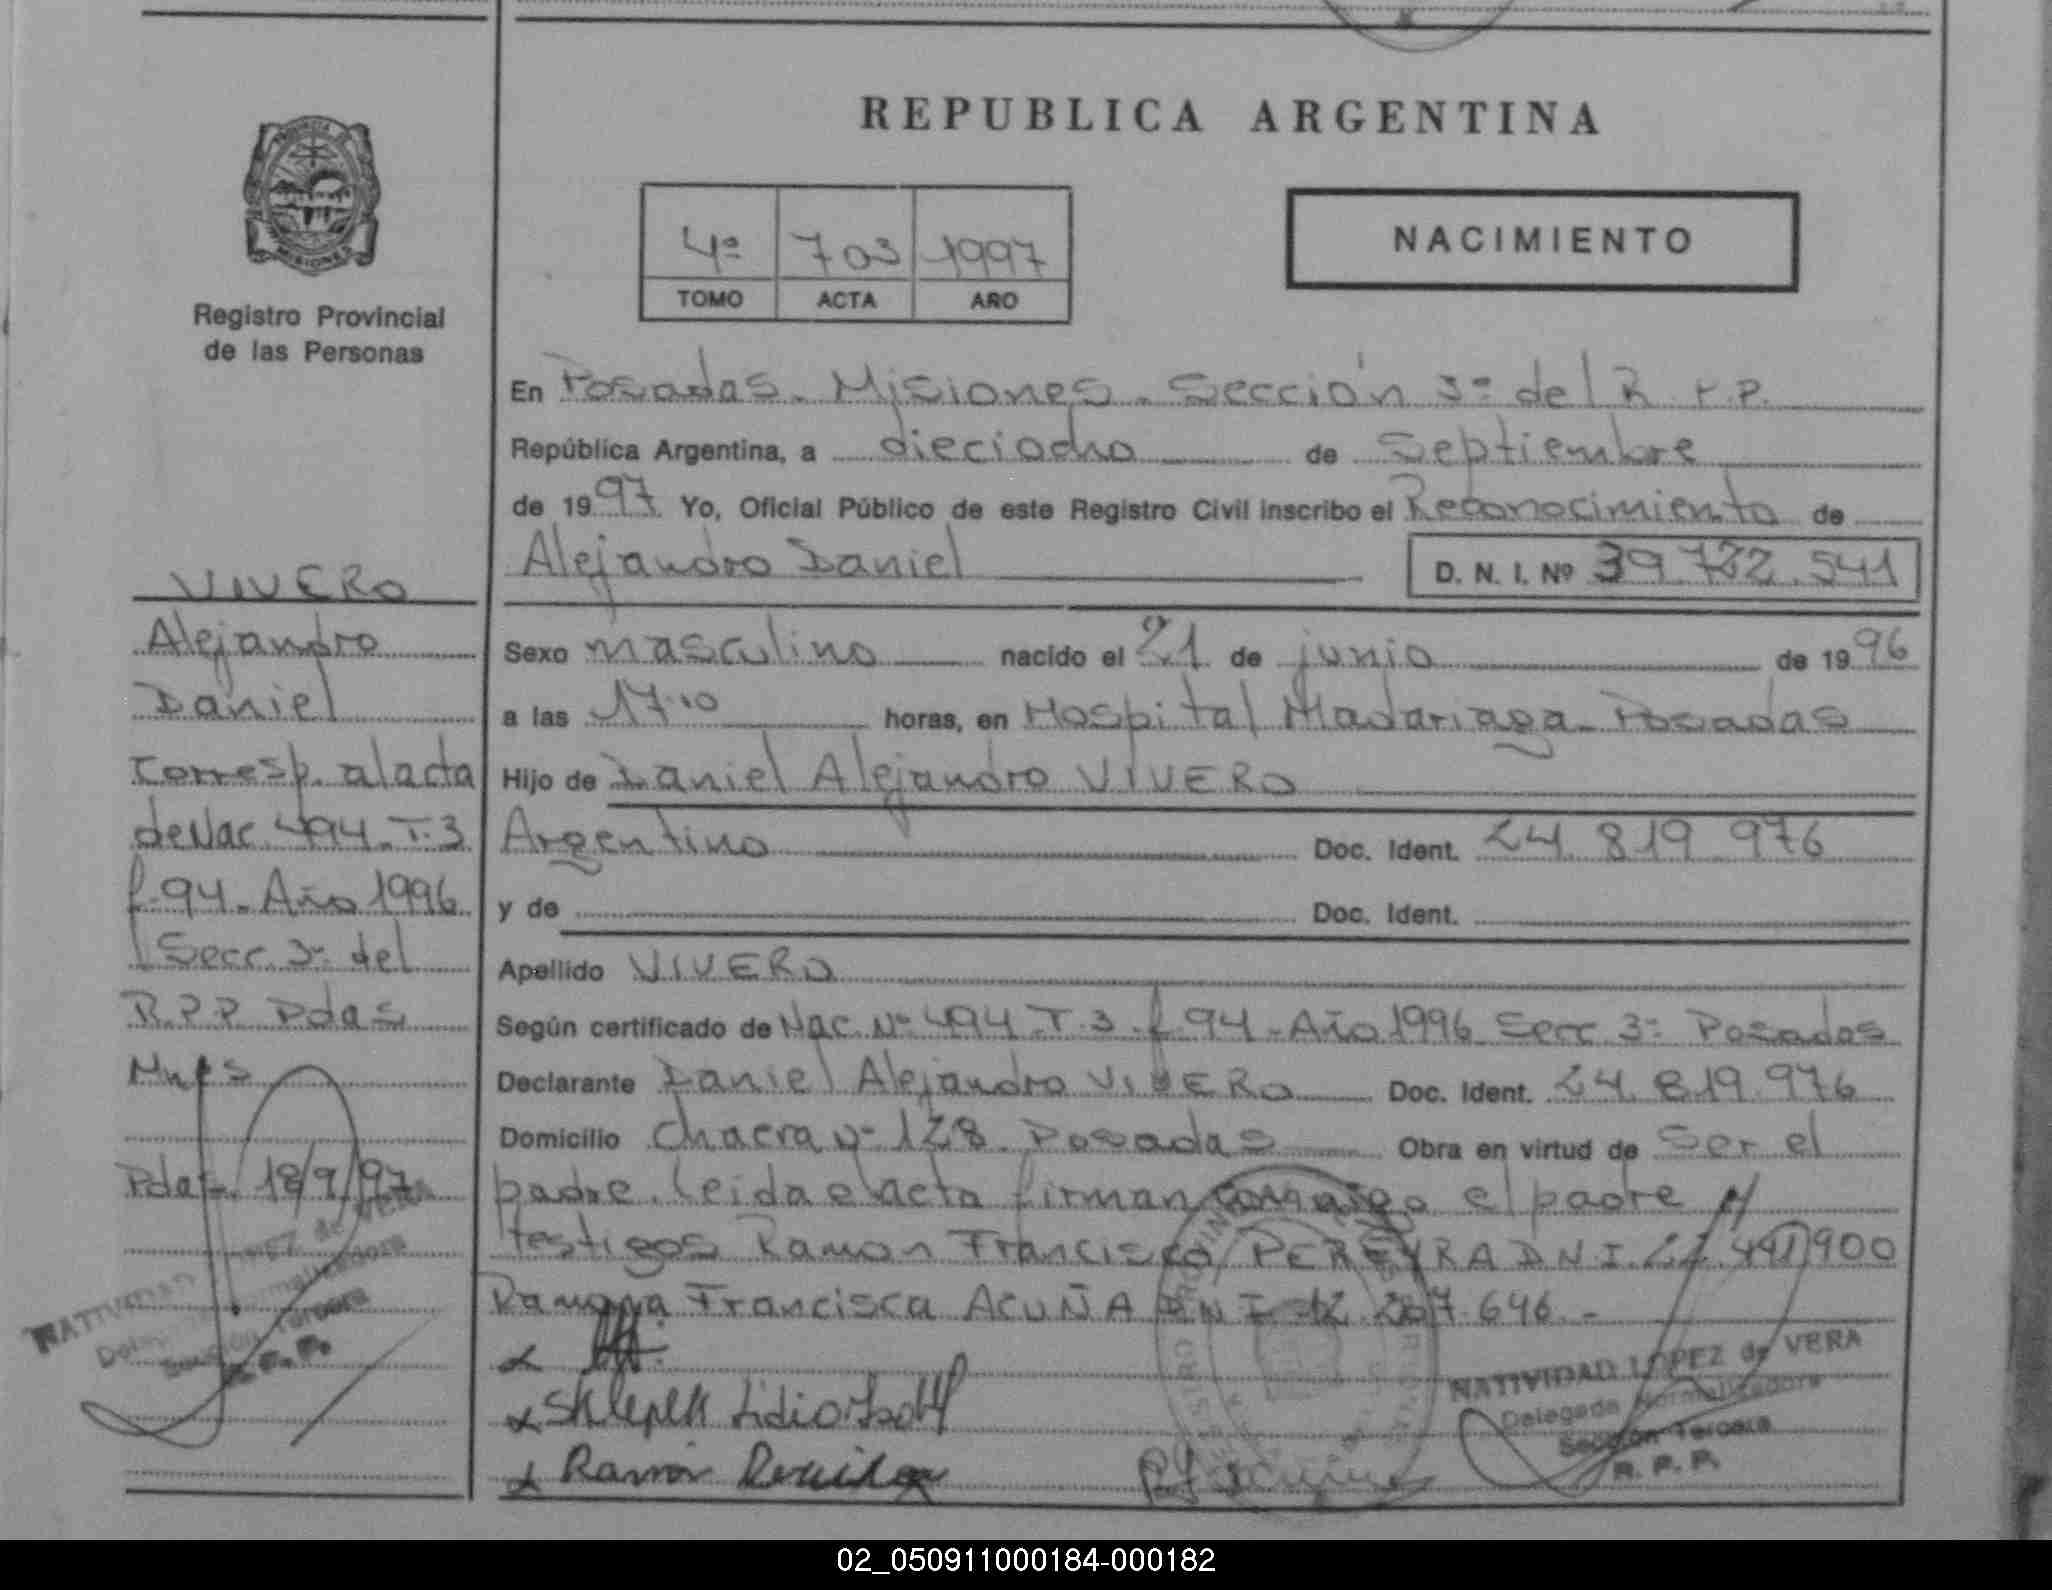 REPUBLICA ARGENTINA
PROVINCIA DE MISIONES
Registro Provincial
de las Personas
4º 703 1997
TOMO ACTA AÑO
NACIMIENTO
En Posadas. Misiones. Sección 3º del R. P.P.
República Argentina, a dieciocho de Septiembre
de 1997 Yo, Oficial Público de este Registro Civil inscribo el Reconocimiento de
Alejandro Daniel D. N. I. Nº 39.722.541
Sexo masculino nacido el 21 de junio de 1996
a las 17.10 horas, en Hospital Madariaga - Posadas
Hijo de Daniel Alejandro VIVERO
Argentino Doc. Ident. 24.819.976
y de Doc. Ident.
Apellido VIVERO
Según certificado de Nac. Nº 494-T.3-f.94-Año 1996 Secc 3º Posadas
Declarante Daniel Alejandro VIVERO Doc. Ident. 24.819.976
Domicilio Chacra Nº 128 Posadas Obra en virtud de Ser el
padre. Leida el acta firman conmigo el padre y
testigos Ramon Francisco PEREYRA D N I. 900
Ramona Francisca ACUÑA D N I 12.267.646.-
Ramón
NATIVIDAD LOPEZ de VERA
Delegada Normalizadora
Sección Tercera
R. P. P.
VIVERO
Alejandro
Daniel
Corresp. al acta
de Nac. 494-T.3
f.94-Año 1996
Secc. 3º del
R.P.P. Pdas
Mnes
Pdas. 18/9/97
NATIVIDAD LOPEZ de VERA
Delegada Normalizadora
Sección Tercera
R. P. P.
02_050911000184-000182